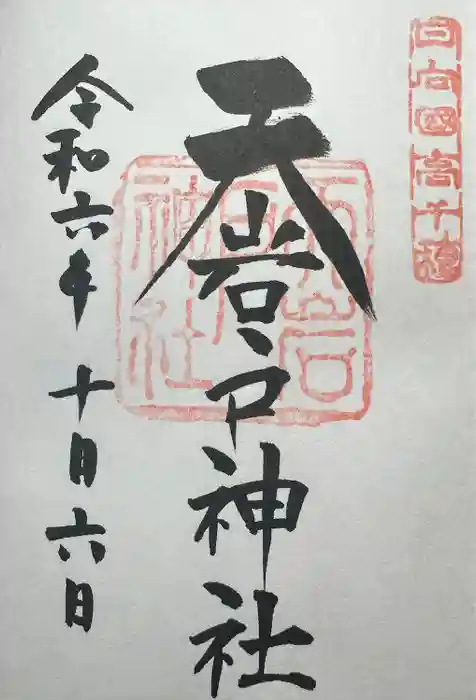 日向國高千穂
天岩戸神社
天岩戸神社
令和六年十月六日